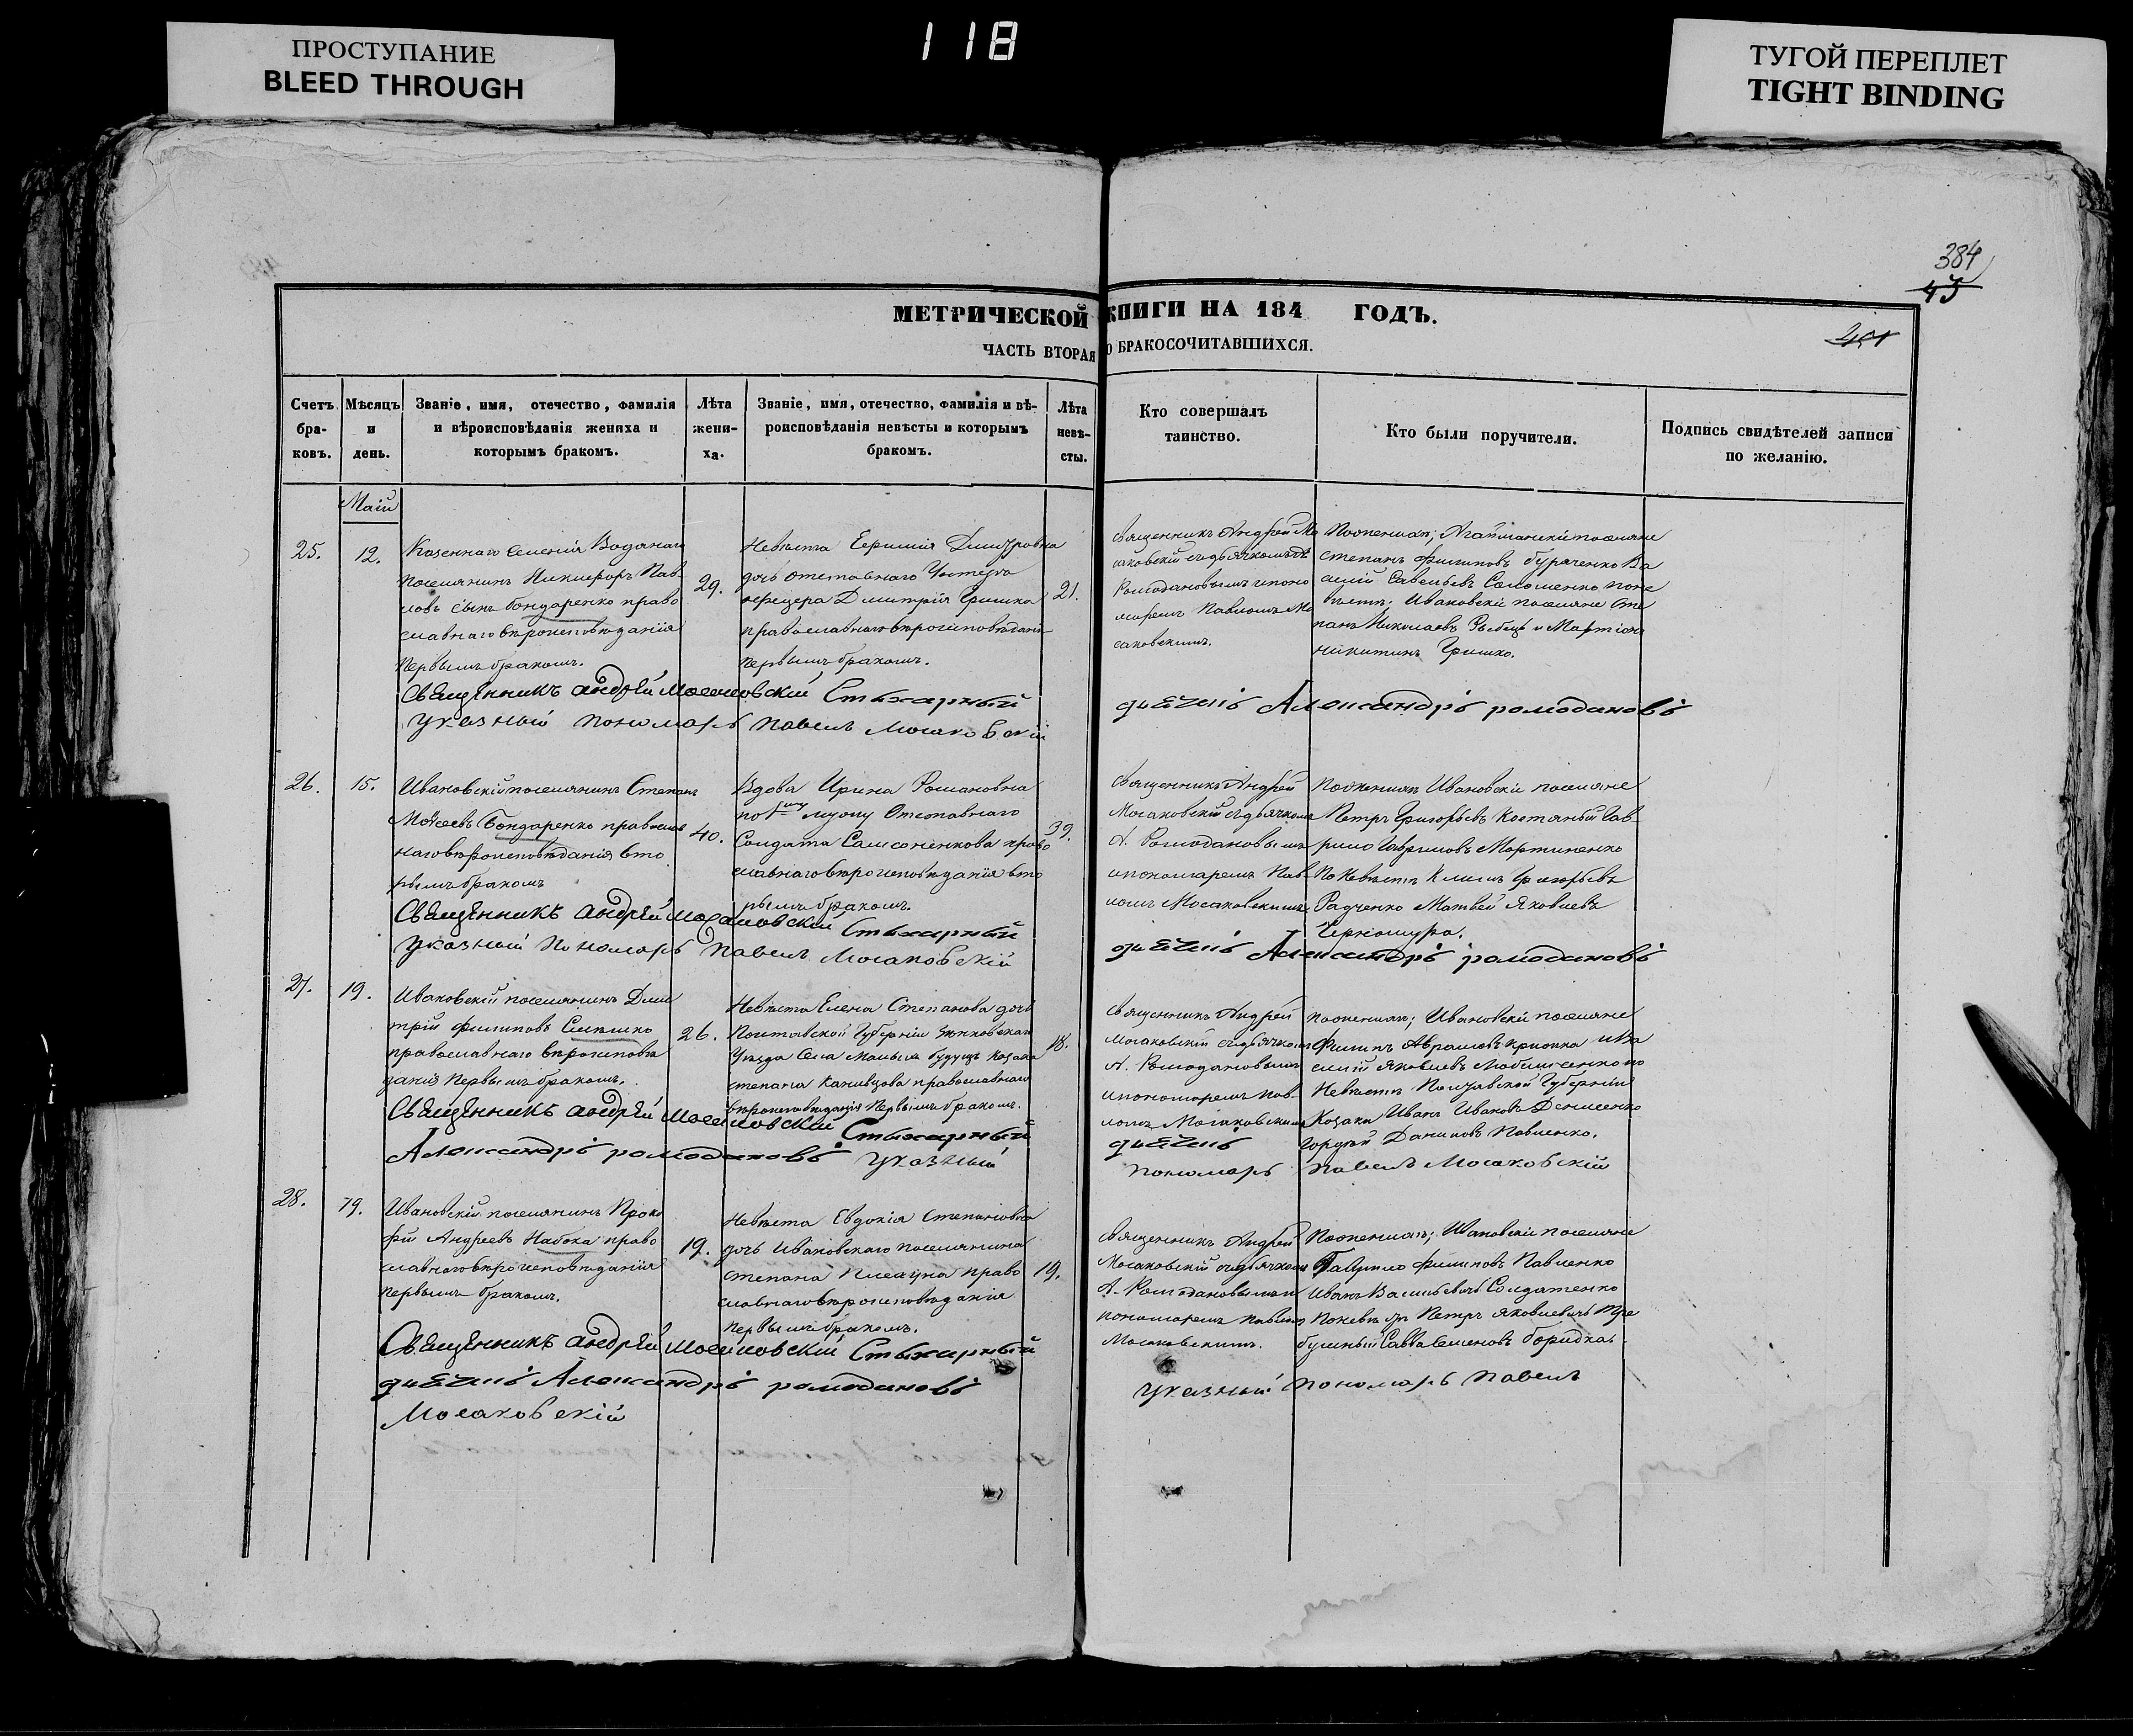 118
ПРОСТУПАНИЕ
BLEED THROUGH
ТУГОЙ ПЕРЕПЛЕТ
TIGHT BINDING
384
45
МЕТРИЧЕСКОЙ КНИГИ НА 184 ГОДЪ.
ЧАСТЬ ВТОРАЯ О БРАКОСОЧИТАВШИХСЯ.
Счетъ бра-ковъ.
Мѣсяцъ и день.
Званіе, имя, отечество, фамилія
и вѣроисповѣданія жениха и
которымъ бракомъ.
Лѣта жени-ха.
Званіе, имя, отечество, фамилія и вѣ-
роисповѣданія невѣсты и которымъ
бракомъ.
Лѣта невѣ-сты.
Кто совершалъ
таинство.
Кто были поручители.
Подпись свидѣтелей записи
по желанію.
Маій
25.
12.
Казеннаго Селенія Водянаго
поселянинъ Никифоръ Пав
ловъ сынъ Бондаренко право
славнаго вѣроисповѣданія
первымъ бракомъ.
29.
Невѣста Дмитровна
дочь отставнаго Унтеръ
офицера Дмитрія Гришка
православнаго вѣроисповѣданія
первымъ бракомъ.
21.
Священникъ Андрей Мо
саковскій съ дьячкомъ
Ромодановымъ и поно
маремъ Павломъ Мо
саковскимъ.
По женихѣ; поселяне
Степанъ Филиповъ Бураченко Ва
силій Савельевъ Соломенко по не
вѣстѣ; Ивановскіе поселяне Сте
панъ Николаевъ Рыбецъ и
Никитинъ Гришко.
Священникъ Андрей Мосаковскій Стихарный
дьячекъ Александръ Ромодановъ
указный пономарь Павелъ Мосаковскій
26.
15.
Ивановскій поселянинъ Степанъ
Моѵсеевъ Бондаренко православ
наго вѣроисповѣданія вто
рымъ бракомъ
40.
Вдова Ирина Романовна
по мужу Отставнаго
Солдата Самсоненкова право
славнаго вѣроисповѣданія вто
рымъ бракомъ.
39.
Священникъ Андрей
Мосаковскій съ дьячкомъ
А. Ромодановымъ
и пономаремъ Пав
ломъ Мосаковскимъ
По женихѣ Ивановскіе поселяне
Петръ Григорьевъ Костяный Гав
рило Гавриловъ Мартиненко
По Невѣстѣ Климъ Григорьевъ
Радченко Матвей Яковлевъ
Черномура.
Священникъ Андрей Мосаковскій Стихарный
дьячекъ Александръ Ромодановъ
указный пономарь Павелъ Мосаковскій
27.
19.
Ивановскій поселянинъ Дми
трій Филиповъ
православнаго вѣроисповѣ
данія первымъ бракомъ.
26.
Невѣста Елена Степанова дочь
Полтавской Губерніи Зѣнковскаго
Уѣзда Села козака
Степана Канивцова православнаго
вѣроисповѣданія первымъ бракомъ.
18.
Священникъ Андрей
Мосаковскій съ дьячкомъ
А. Ромодановымъ
и пономаремъ Пав
ломъ Мосаковскимъ
По женихѣ; Ивановскіе поселяне
Филипъ Абрамовъ и Ва
силій Яковлевъ по
Невѣстѣ Полтавской Губерніи
Козаки Иванъ Ивановъ Денисенко
Гордѣй Даниловъ Павленко.
Священникъ Андрей Мосаковскій Стихарный
дьячекъ
Александръ Ромодановъ указный
пономарь Павелъ Мосаковскій
28.
19.
Ивановскій поселянинъ Проко
фій Андреевъ Набока право
славнаго вѣроисповѣданія
первымъ бракомъ.
19.
Невѣста Евдокія Степановна
дочь Ивановскаго поселянина
Степана право
славнаго вѣроисповѣданія
первымъ бракомъ.
19.
Священникъ Андрей
Мосаковскій съ дьячкомъ
А. Ромодановымъ и
пономаремъ Павломъ
Мосаковскимъ.
По женихѣ; Ивановскіе поселяне
Гаврило Филиповъ Павленко
Иванъ Васильевъ Солдатенко
По невѣстѣ Петръ Яковлевичъ Тре
бушный Савва Семеновъ
Священникъ Андрей Мосаковскій Стихарный
дьячекъ Александръ Ромодановъ
указный пономарь Павелъ
Мосаковскій